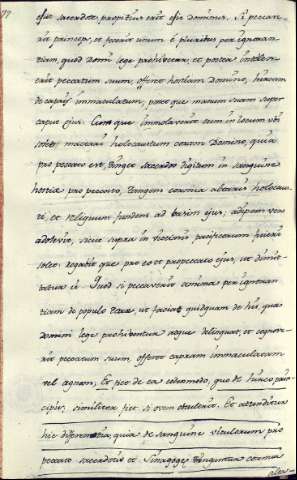 77
esse sacerdote, propitius erit esse Dominus. Si peccave-
rit princeps, et fecerit unum è pluribus per ignoran-
tiam, quod Domini lege prohibetur, et postea intellexe-
rit peccatum suum, offeret hostiam Domino, hircum
de capris immaculatum, ponetque manum suam super
caput ejus. Cumque immolaverit eum in locum ubi
solet mactari holocaustum coram Domino, quia
pro peccato est, tinget sacerdos digitum in sanguine
hostiæ pro peccato, tangens cornua altaris holocaus-
ti, et reliquum fundens ad basim ejus, adipem vero
adolevit, sicut supra in victimis pacificorum fieri
solet: rogabit que pro eo et pro peccato ejus, ut dimit-
tatur ei. Quod si peccaverit anima per ignoran-
tiam de populo terræ, ut faciat quidquam de his, quæ
Domini lege prohibentur atque delinquat, et cognove-
rit peccatum suum, offeret capram immaculatam
vel agnam, Et fiet de ea eodem modo, quo de hirco prin-
cipis, similiter fiet si ovem obtulerit. Et attenditur
hic differentia, quia de sanguine vitulorum pro
peccato sacerdotis et Sinagogæ tinguntur cornua
alta-